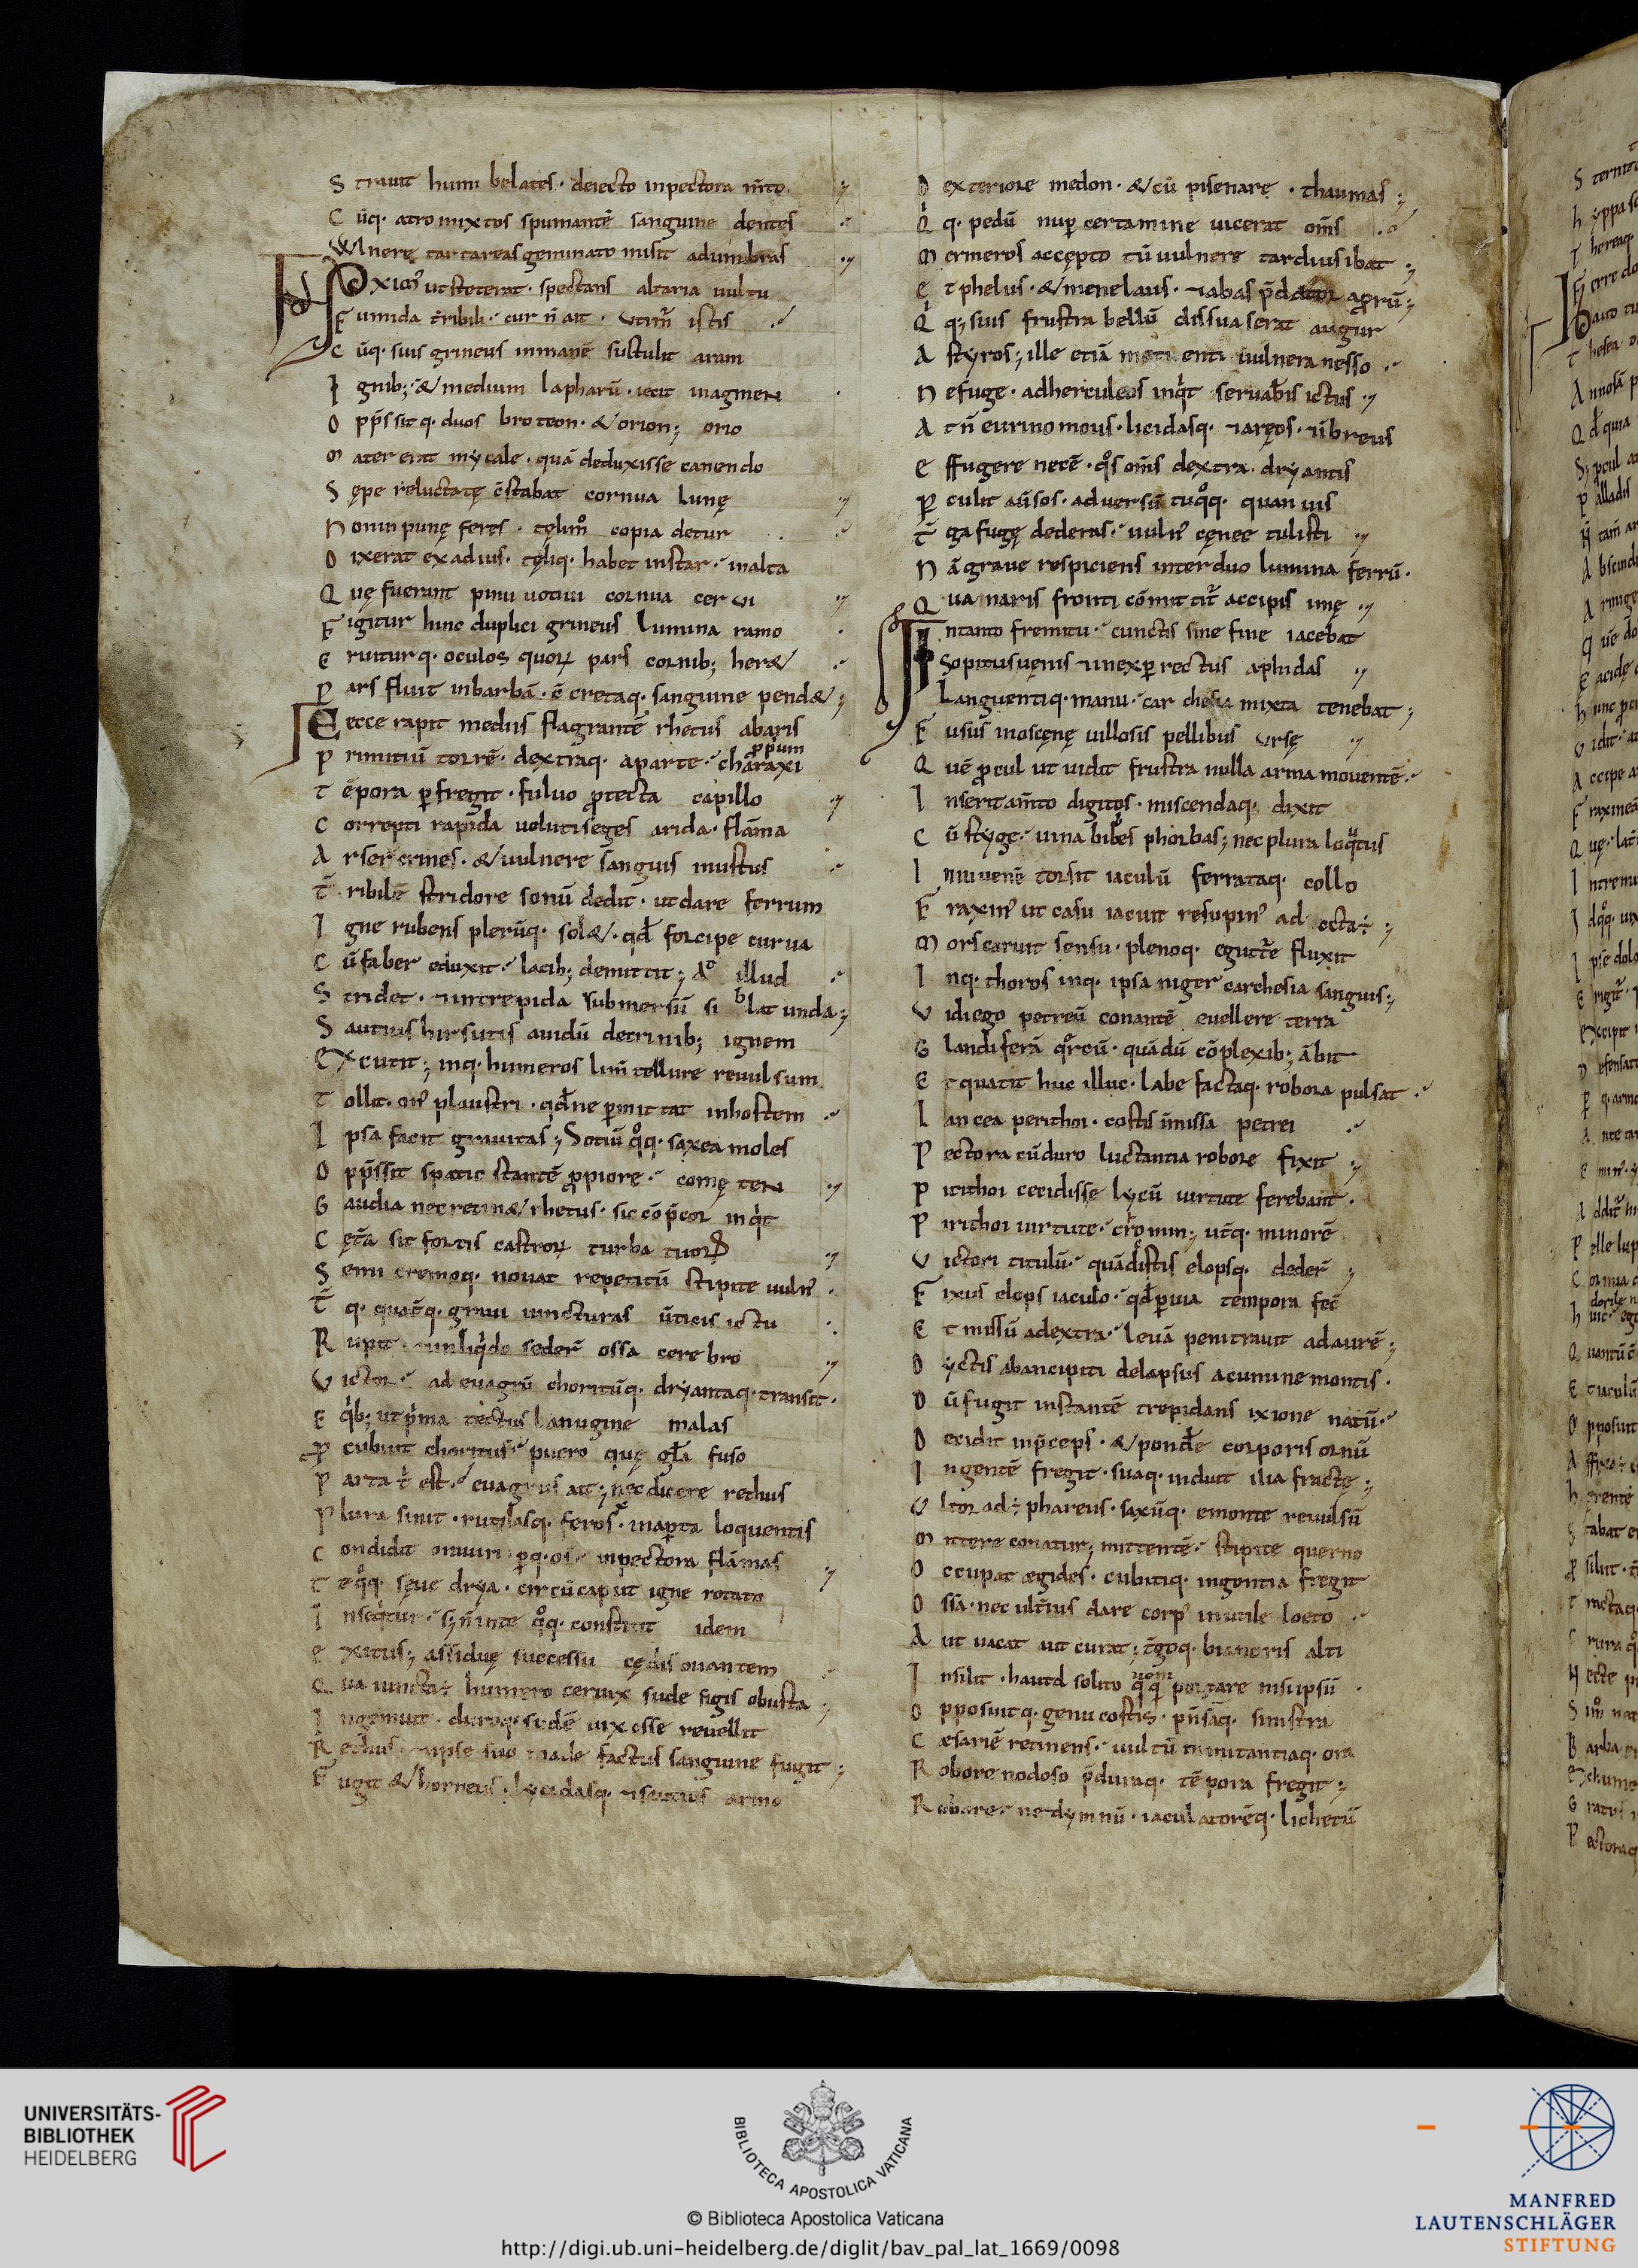 S trauit humi belates · deiecto inpectora m̄to
C ūq· atro mixtos spumantē sanguine dentes
Wlnerę tartareas geminato misit adumbras
P roxim9 ut steterat · spectans altaria uultu
F umida t̄ribili · cur n̄ ait · utim̄ istis
C ūq· suis grineus inmanē sustulit aram
I gnib; & medium lapharū · iecit inagmen
O pp̄ssitq· duos broteon · & orion; orio
M ater erat mycale · quā deduxisse canendo
S ępe reluctatę c̄stabat cornua lunę
N onin punę feres · tęlim̊ copia detur
D ixerat exadius · tęliq· habet instar · inalta
Q uę fuerant pinu uotiui cornua cerui
F igitur hinc duplici grineus lumina ramo
E ruiturq· oculos quoꝝ pars cornib; her&
P ars fluit inbarbā · c̄cretaq· sanguine pend&;
E ecce rapit mediis flagrantē rhetus abaris
P rimitiū torrē · dextraq· aparte charaxi
T ēpora ꝑfregit · fuluo ꝓtecta capillo
C orrepti rapida ueluti seges arida · flāma
A rser crines · & uulnere sanguis inustus
T̄ ribilē stridore sonū dedit · ut dare ferrum
I gne rubens plerūq· sol& · qđ forcipe curua
C ū faber eduxit · lacib; demittit; Ao illud
S tridet · ⁊intrepida submersū sibilat unda;
S autius hirsutis auidū detrinib; ignem
Excutit; inq· humeros limn̄ tellure reuulsum
T ollit · on9 plaustri · qđne ꝑmittat inhostem
I psa facit grauitas; Sotiū qo̊q· saxea moles
O pp̄ssit spatio stantē ꝓpiorę · comę ten
G audia nec retin& rhetus · sic cōp̄cor inqi̇t
C ęt̄a sit fortis castroꝝ turba tuoꝝ
S emi cremoq· nouat repetitū stipite uuln9
T̄ q· quat̄q· graui iuncturas ūticis ictu
R upit · ⁊inliqi̇do seder̄ ossa cerebro
V ictor · ad euagrū choritūq· dryantaq· transit ·
E qi̇b; ut p̄ma tectus lanugine malas
P cubuit choritus · puero quę gł̄a fuso
P arta t̄ est · euagrus ait; nec dicere retius
P lura sinit · rutilasq· feros · inaꝑta loquentis
C ondidit oraùiri · ꝑq· os · inpectora flāmas
T e qo̊q· sęue drya · circūcaput igne rotato
I nseqi̇tur · s; n̄ inte qo̊q· constitit idem
E xitus; assiduę successu cędis ouantem
Q ua iuncta ÷ humero ceruix sude figis obusta;
I ngemuit · duroq· sudē uix osse reuellit
R etius · ⁊ipse suo made factus sanguine fugit;
F ugit & orneus · lycidasq· ⁊sautius armo
D exteriore medon · & cū pisenarę · thaumas;
Q q· pedū nuꝑ certamine uicerat om̄s
M ermeros accępto tū uulnere tardius ibat;
E t phelus · & menelaus · ⁊abas p̄dator aproꝝ;
Q q;suis frustra bellū dissuaserat augur
A styros; ille etiā metuenti uulnera nesso
N efuge · adherculeos inqi̇t seruab̄is ictus
A t n̄ eurinomous · licidasq· ⁊aręos · ⁊ībreus
E ffugere necē · qo̊s om̄s dextra · dryantis
P culit aūsos · aduersū tuqo̊q· quanuis
T̄ ga fugę dederas · uuln9 cęnee tulisti
N ā graue respiciens inter duo lumina ferrū ·
Q ua naris fronti cōmittit̄ accipis imę
I ntanto fremitu · cunctis sine fine iacebat
Sopitus uęnis ⁊inexꝑrectus aphidas
Languentiq· manu · carchesia mixta tenebat;
F usus inoscęnę uillosis pellibus ursę
Q uē ꝓcul ut uidit frustra nulla arma mouentē
I nserit am̄to digitos · miscendaq· dixit
C ū styge · uina bibes phorbas; nec plura loqu̇tus
I niuuenē torsit iaculū ferrataq· collo
F raxin9 ut casu iacuit resupin9 adecta÷;
M ors caruit sensu · plenoq· egutt̄e fluxit
I nq· thoros inq· ipsa niger carchesia sanguis;
V idi ego petreū conantē euellere terra
G landiferā qr̊cū · quā dū cōplexib; ābit
E t quatit huc illuc · labe factaq· robora pulsat
L ancea perithoi · costis īmissa petrei
P ectora cū duro luctantia robore fixit;
P irithoi cecidisse lycū uirtute ferebant ·
P irithoi uirtute · cromin; ut̄q· minorē
V ictori titulū · quā distis elopsq· deder̄;
F ixus elops iaculo · qđ ꝑuia tempora fec̄
E t missū adextra · leuā penitrauit adaurē;
D yctis abancipiti delapsus acumine montis ·
D ū fugit instantē trepidans ixione natū
D ecidit inp̄ceps · & ponđe corporis ornū
I ngentē fregit · suaq· induit ilia fractę;
V ltor ad÷ phareus · saxūq· emonte reuulsū
M ittere conatur; mittentē · stipite querno
O ccupat ægides · cubitiq· ingentia fregit
O ssa · nec ult̄ius dare corp9 inutile loeto
A ut uacat aut curat; t̄goq· bianoris alti
I nsilit · hautd solito qēqi̇ portare nisi ipsū
O pposuitq· genu costis · p̄nsāq· sinistra
C æsariē retinens · uultū minitantiaq· ora
R obore nodoso p̄duraq· tēpora fregit;
R obore · nedymnū · iaculatorēq· lichetū
UNIVERSITÄTS-
BIBLIOTHEK
HEIDELBERG
BIBLIOTECA APOSTOLICA VATICANA
© Biblioteca Apostolica Vaticana
http://digi.ub.uni-heidelberg.de/diglit/bav_pal_lat_1669/0098
MANFRED
LAUTENSCHLÄGER
STIFTUNG